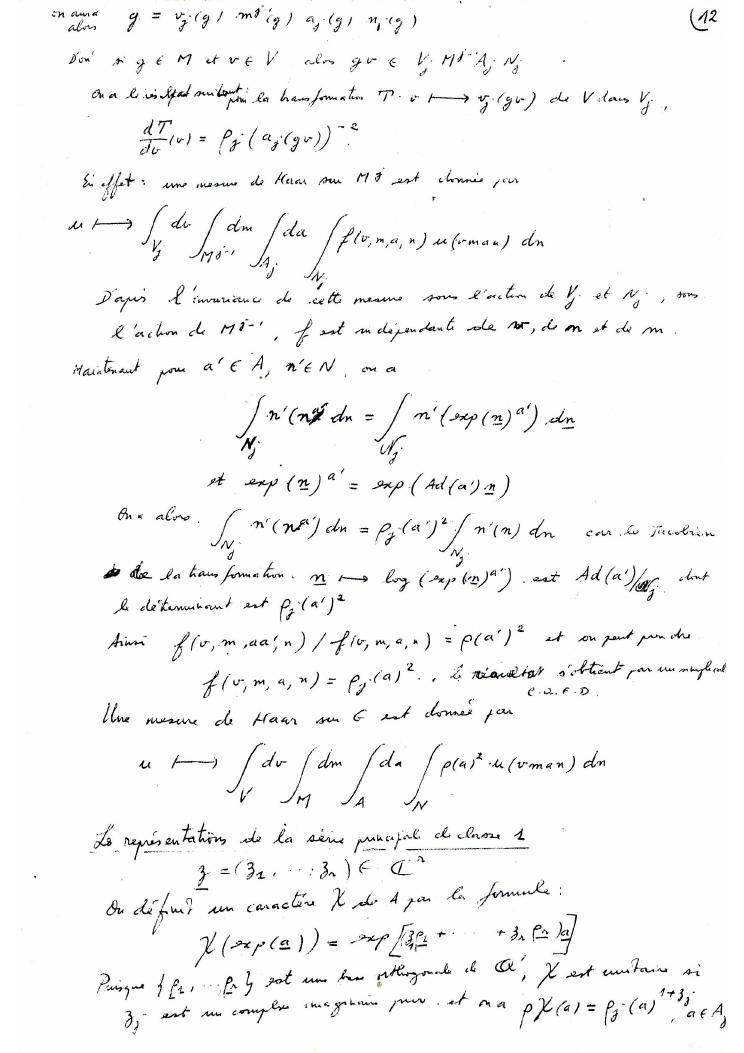 on aura alors g = v_j(g) m^{δ-1}(g) a_j(g) n_j(g) (12
D'où si g ∈ M et v ∈ V alors gv ∈ V_j M^{δ-1} A_j N_j.
On a le résultat suivant: pour la transformation T: v ⟼ v_j(gv) de V dans V_j,
dT/dv (v) = ρ_j(a_j(gv))^{-2}.
En effet: une mesure de Haar sur M^δ est donnée par
u ⟼ ∫_{V_j} dv ∫_{M^{δ-1}} dm ∫_{A_j} da ∫_{N_j} f(v,m,a,n) u(vman) dn
D'après l'invariance de cette mesure sous l'action de V_j et N_j, sous
l'action de M^{δ-1}, f est indépendante de v, de n et de m.
Maintenant pour a' ∈ A, n' ∈ N, on a
∫_{N_j} n'(n^{a'}) dn = ∫_{𝒩_j} n'(exp(n)^{a'}) dn
et exp(n)^{a'} = exp(Ad(a')n)
On a alors. ∫_{N_j} n'(n^{a'}) dn = ρ_j(a')^2 ∫_{N_j} n'(n) dn car le Jacobien
de la transformation. n ⟼ log(exp(n)^{a'}) est Ad(a')/𝒩_j dont
le déterminant est ρ_j(a')^2
Ainsi f(v,m,aa',n) / f(v,m,a,n) = ρ(a')^2 et on peut prendre
f(v,m,a,n) = ρ_j(a)^2. Le résultat s'obtient par un simple
C.Q.F.D.
Une mesure de Haar sur G est donnée par
u ⟼ ∫_V dv ∫_M dm ∫_A da ∫_N ρ(a)^2 u(vman) dn
Les représentations de la série principal de classe 1
z = (z_1, ..., z_r) ∈ ℂ^r
On définit un caractère χ de A par la formule:
χ(exp(a)) = exp[z_1ρ_1 + ..... + z_r ρ_r)a]
Puisque {ρ_1, ... ρ_r} est une base orthogonale de 𝒶', χ est unitaire si
z_j est un complexe imaginaire pur. et on a ρχ(a) = ρ_j(a)^{1+z_j}, a ∈ A_j